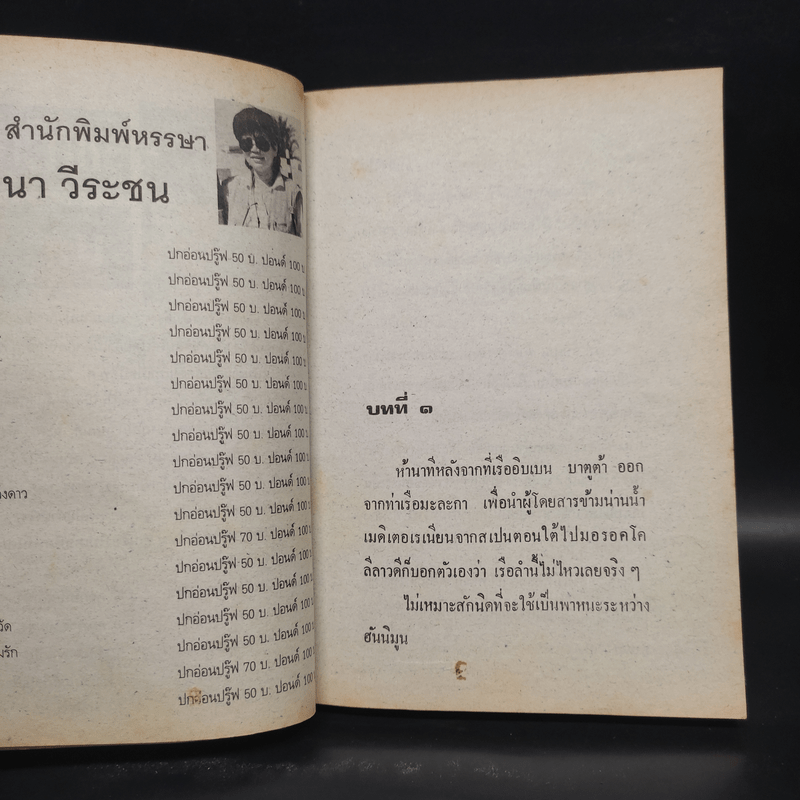 สำนักพิมพ์หรรษา
นา วีระชน
ปกอ่อนปรู๊ฟ 50 บ. ปอนด์ 100 บ
ปกอ่อนปรู๊ฟ 50 บ. ปอนด์ 100 บ
ปกอ่อนปรู๊ฟ 50 บ. ปอนด์ 100 บ
ปกอ่อนปรู๊ฟ 50 บ. ปอนด์ 100 บ
ปกอ่อนปรู๊ฟ 50 บ. ปอนด์ 100 บ
ปกอ่อนปรู๊ฟ 50 บ. ปอนด์ 100 บ
ปกอ่อนปรู๊ฟ 50 บ. ปอนด์ 100 บ
ปกอ่อนปรู๊ฟ 50 บ. ปอนด์ 100 บ
ปกอ่อนปรู๊ฟ 50 บ. ปอนด์ 100 บ
งดาว ปกอ่อนปรู๊ฟ 50 บ. ปอนด์ 100 บ
ปกอ่อนปรู๊ฟ 50 บ. ปอนด์ 100 บ
ปกอ่อนปรู๊ฟ 70 บ. ปอนด์ 100 บ
ปกอ่อนปรู๊ฟ 50 บ. ปอนด์ 100 บ
ปกอ่อนปรู๊ฟ 50 บ. ปอนด์ 100 บ
ปกอ่อนปรู๊ฟ 50 บ. ปอนด์ 100 บ
ปกอ่อนปรู๊ฟ 50 บ. ปอนด์ 100 บ
มรัก ปกอ่อนปรู๊ฟ 70 บ. ปอนด์ 100 บ
ปกอ่อนปรู๊ฟ 50 บ. ปอนด์ 100
บทที่ ๑
ห้านาทีหลังจากที่เรืออิบเบน บาตูต้า ออก
จากท่าเรือมะละกา เพื่อนำผู้โดยสารข้ามน่านน้ำ
เมดิเตอเรเนียนจากสเปนตอนใต้ไปมอรอคโค
ลีลาวดีก็บอกตัวเองว่า เรือลำนี้ไม่ไหวเลยจริง ๆ
ไม่เหมาะสักนิดที่จะใช้เป็นพาหนะระหว่าง
ฮันนิมูน